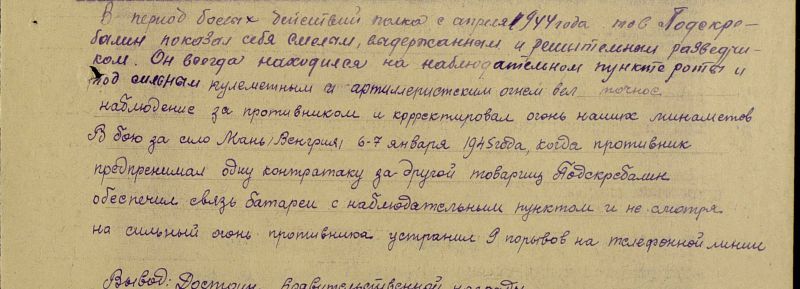 В период боевых действий полка с апреля 1944 года тов Подскре-
балин показал себя смелым, выдержанным и решительным разведчи-
ком. Он всегда находился на наблюдательном пункте роты и
под сильным пулеметным и артиллеристским огнем вел точное
наблюдение за противником и корректировал огонь наших минаметов
В бою за село Мань /Венгрия/ 6-7 января 1945 года, когда противник
предпренимал одну контратаку за другой товарищ Подскребалин
обеспечил связь батареи с наблюдательным пунктом и не смотря
на сильный огонь противника устранил 9 порывов на телефонной линии
Вывод: Достоин правительственной награды